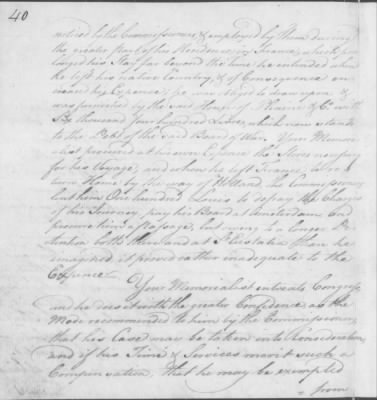 40
noticed to the Commissioners, & employed by them during
the greater part of his Residence in France, which pro
longed his Stay far beyond the time he intended when
he left his native Country, & of Consequence en
creased his Expence; he was obliged to draw upon &
was furnished by the said House of & Co. with
Six thousand four hundred Livres, which now stands
to the Debt of the said Board of War. Your Memori
alist procured at his own Expence the Stores necessary
for his Voyage, and when he left France, to re
turn Home by the way of Holland, the Commissioners
lent him One hundred Louis to defray the Charges
of his Journey, pay his Board at Amsterdam and
procure him a Passage, but owing to a longer De
tention both there and at St Eustatia than he
imagined it proved rather inadequate to the
Expence.
Your Memorialist entreats Congress
and he does it with the greater Confidence, as the
Mode recommended to him by the Commissioners,
that his Case may be taken into Consideration
and if his Time & Services merit such a
Compensation, that he may be exempted
from